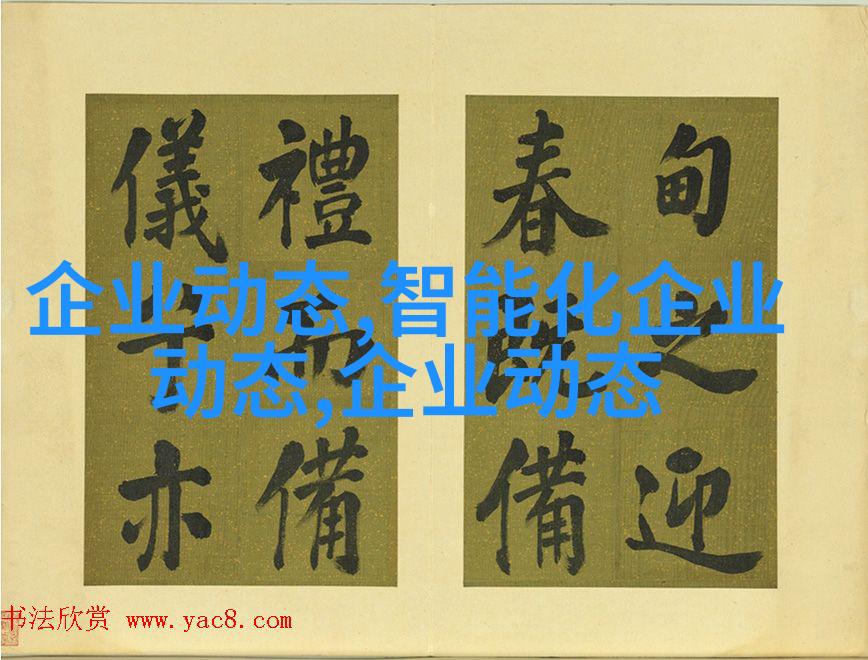 甸之迎
春既備
禮而備
儀亦
企业动态,智能化企业
动态,企业动态
书法欣赏 www.yac8.com